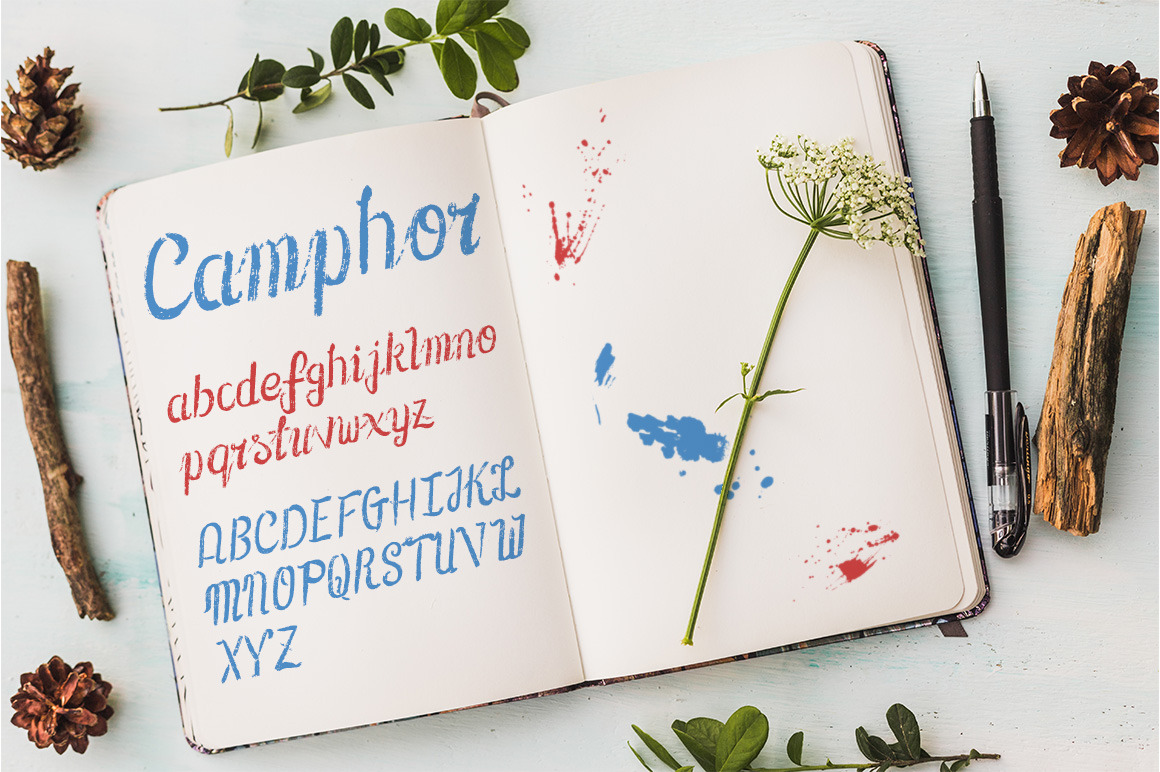 Camphor
abcdefghijklmno
pqrstuvwxyz
ABCDEFGHIJKL
MNOPQRSTUVW
XYZ